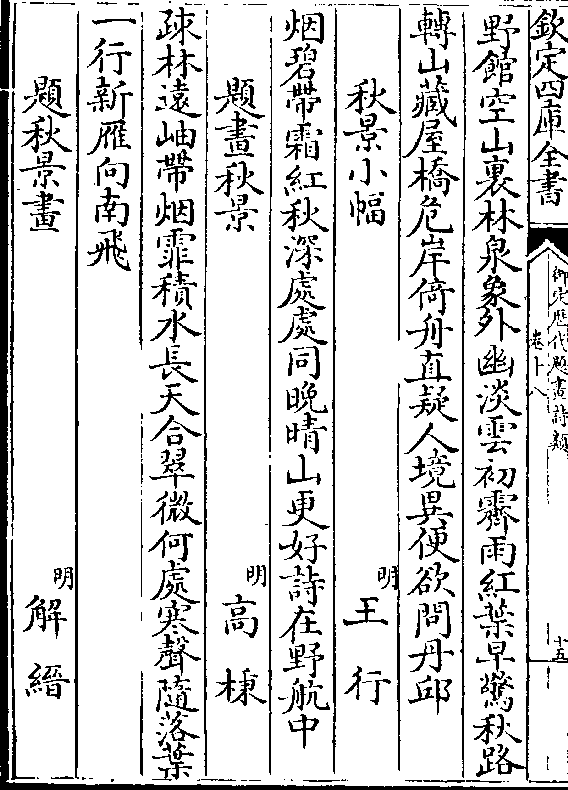 欽定四庫全書
御定歴代題畫詩類
卷十八
十五
野館空山裏林泉象外幽淡雲初霽雨紅葉早驚秋路
轉山藏屋橋危岸倚舟直疑人境異便欲問丹邱
秋景小幅
明
王行
烟碧帶霜紅秋深處處同晚晴山更好詩在野航中
題畫秋景
明
高棅
疎林遠岫帶烟霏積水長天合翠微何處寒聲隨落葉
一行新雁向南飛
題秋景畫
明
解縉